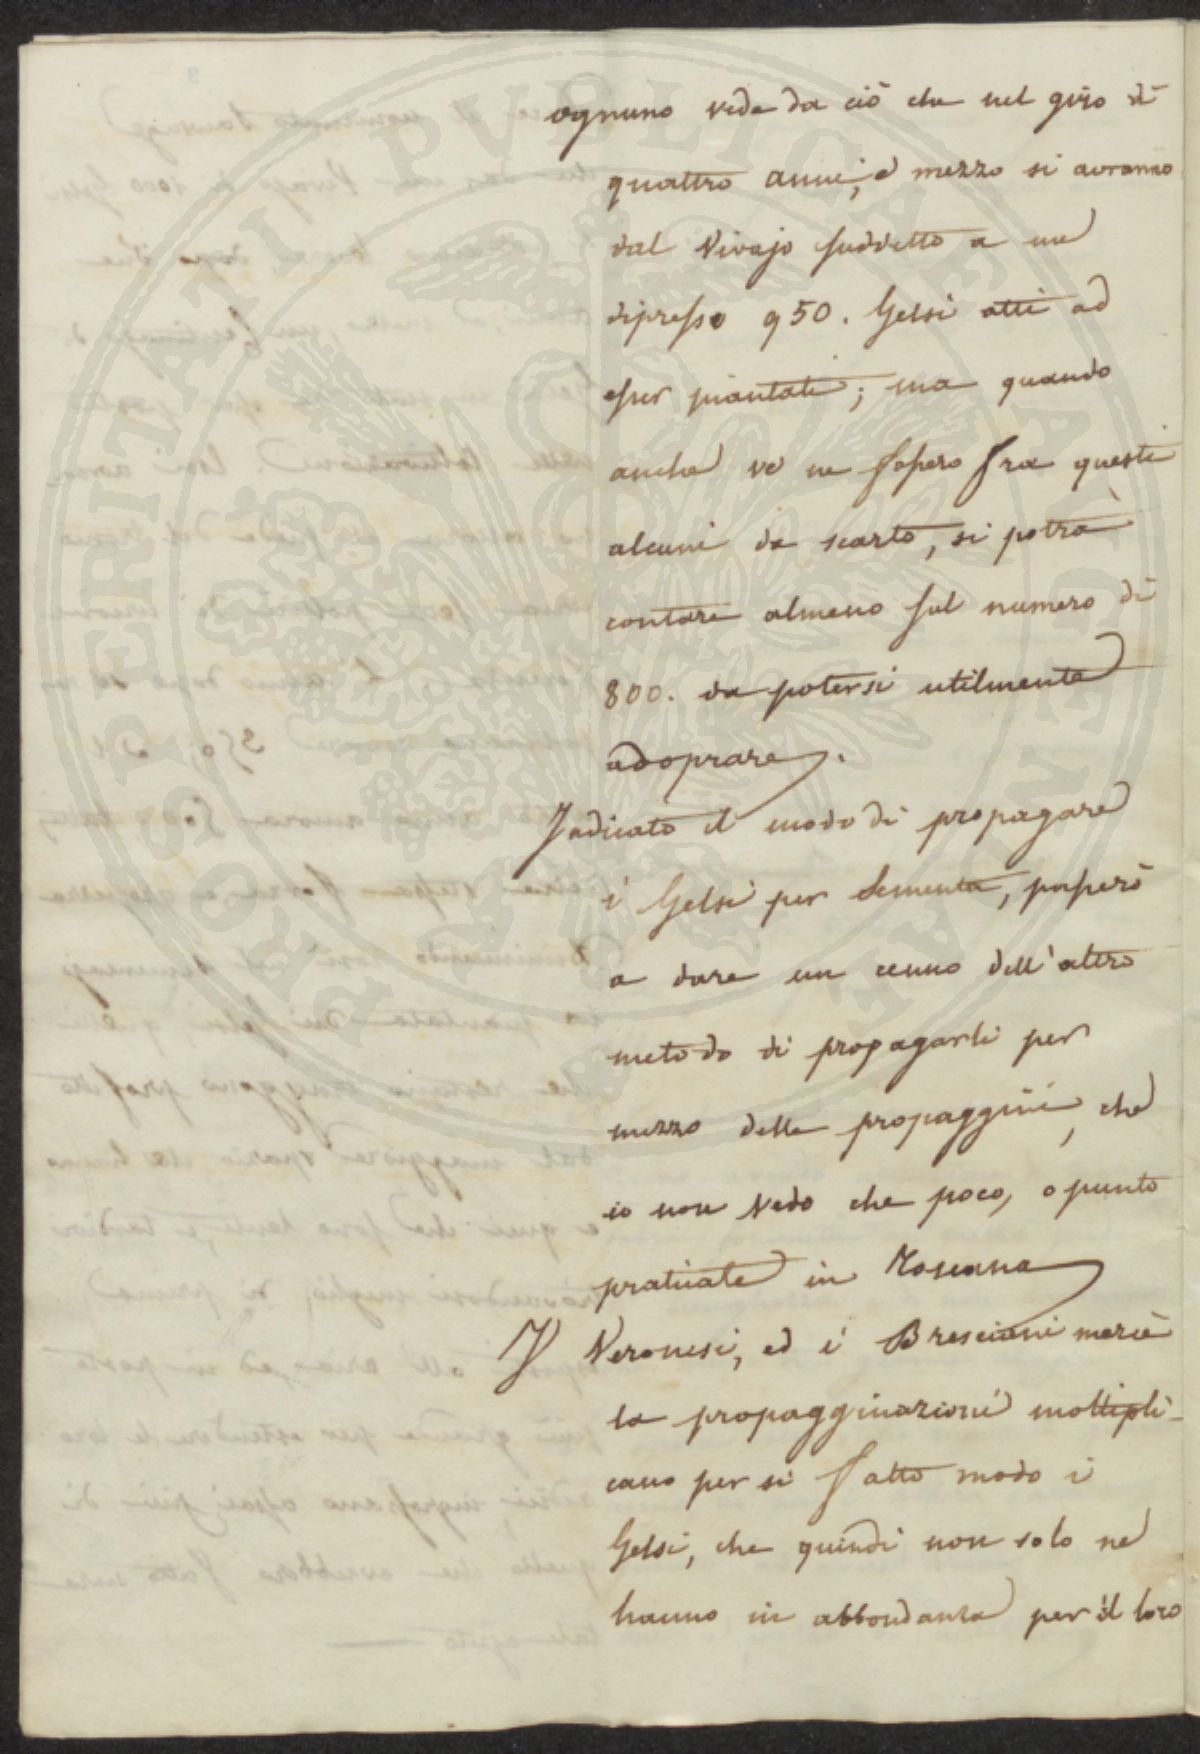 ognuno vede da ciò che nel giro di
quattro anni, e mezzo si avranno
dal Vivajo suddetto a un
dipresso 950. Gelsi atti ad
esser piantati; ma quando
anche ve ne fossero fra questi
alcuni da scarto, si potrà
contare almeno sul numero di
800. da potersi utilmente
adoprare.
Indicato il modo di propagare
i Gelsi per Sementa, passerò
a dare un cenno dell'altro
metodo di propagarli per
mezzo delle propaggini, che
io non vedo che poco, o punto
praticate in Toscana
I Veronesi, ed i Bresciani mercè
la propagginazione moltipli-
cano per si fatto modo i
Gelsi, che quindi non solo ne
hanno in abbondanza per il loro
PROSPERITATI PVBLICAE AVGENDAE